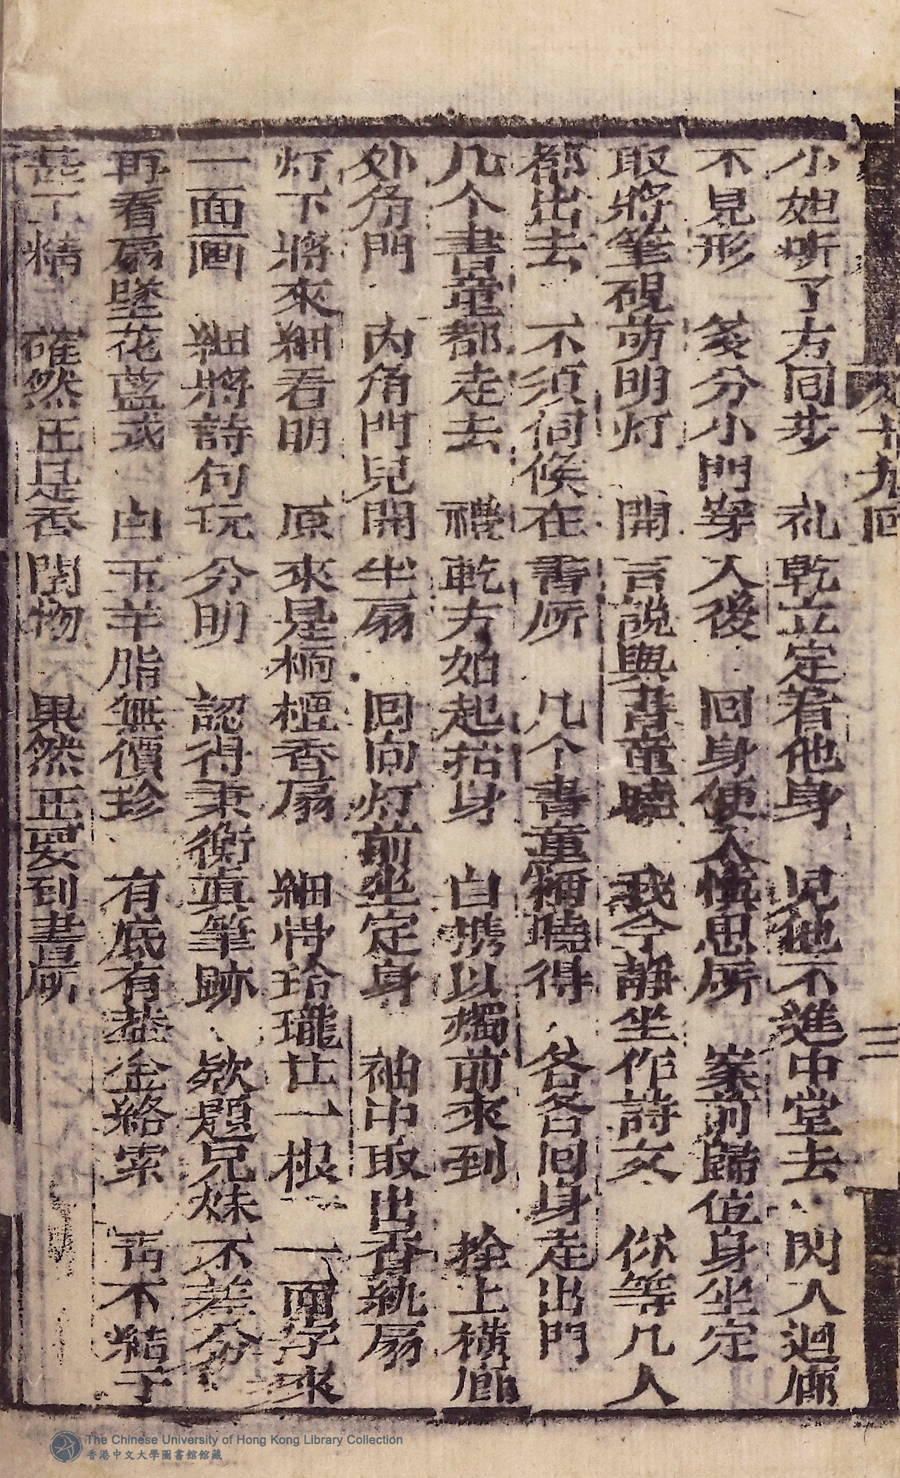 回
二
小姐听了方同步 礼乾立定看他身 見他不進中堂去 閃入迴廊
不見形 分小門穿入後 回身使人慎思所 案前歸位身坐定
取將筆硯萌明灯 開言說與書童曉 我今靜坐作詩文 你等几人
都出去 不須伺候在書所 几个書童稱曉得 各各回身走出門
几个書童都走去 禮乾方始起抬身 自携以燭前來到 拴上橫廊
外角門 內角門兒開坐扇 回向灯前坐定身 袖中取出香紈扇
灯下將來細看明 原來是栴檀香扇 細骨玲瓏廿一根 一面字來
一面画 細將詩句玩分明 認得秉衡真筆跡 欵題兄妹不差分
再看扇墜花藍式 白玉羊脂無價珍 有底有蓋金絡索 舌不結子
甚工精 確然正是香閨物 果然正要到書所
The Chinese University of Hong Kong Library Collection
香港中文大學圖書館館藏